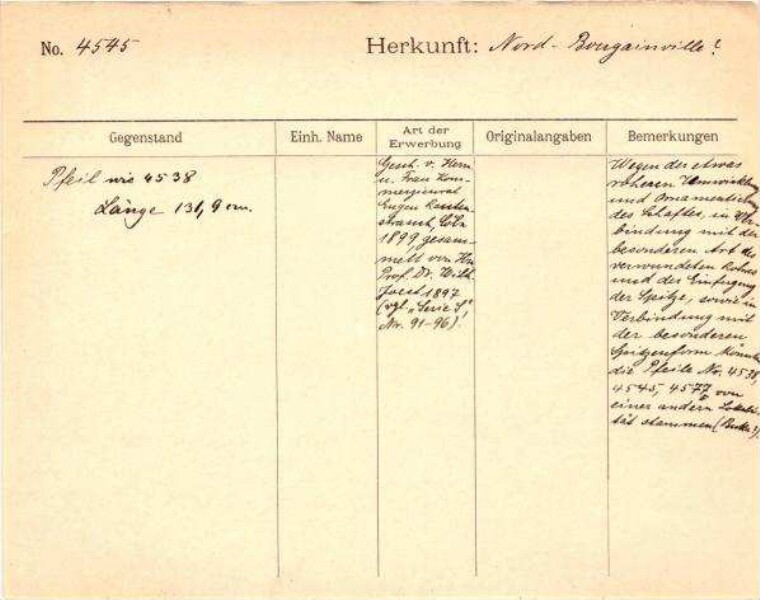 No. 4545
Herkunft: Nord-Bougainville?
Gegenstand
Einh. Name
Art der Erwerbung
Originalangaben
Bemerkungen
Pfeil wie 4538
Länge 131,9 cm.
Gesch. v. Herrn
u. Frau Kom-
merzienrat
Eugen Rauten-
strauch, Cöln
1899, gesam-
melt von Hn
Prof. Dr. Wilh.
Joest 1897
(vgl. „Serie S",
Nr. 91-96).
Wegen der etwas
roheren Umwicklung
und Ornamentierung
des Schaftes, in Ver-
bindung mit der
besonderen Art des
verwendeten Rohres
und der Einfügung
der Spitze, sowie in
Verbindung mit
der besonderen
Spitzenform könnten
die Pfeile No. 4538,
4545, 4577 von
einer andern Lokali-
tät stammen (Buka?).